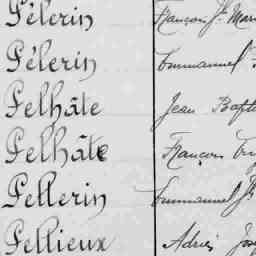 Pélerin François Jh Marie
Pélerin Emmanuel
Pelhâte Jean Bapt
Pelhâte François
Pellerin Emmanuel Jh
Pellieux Adrien Jos